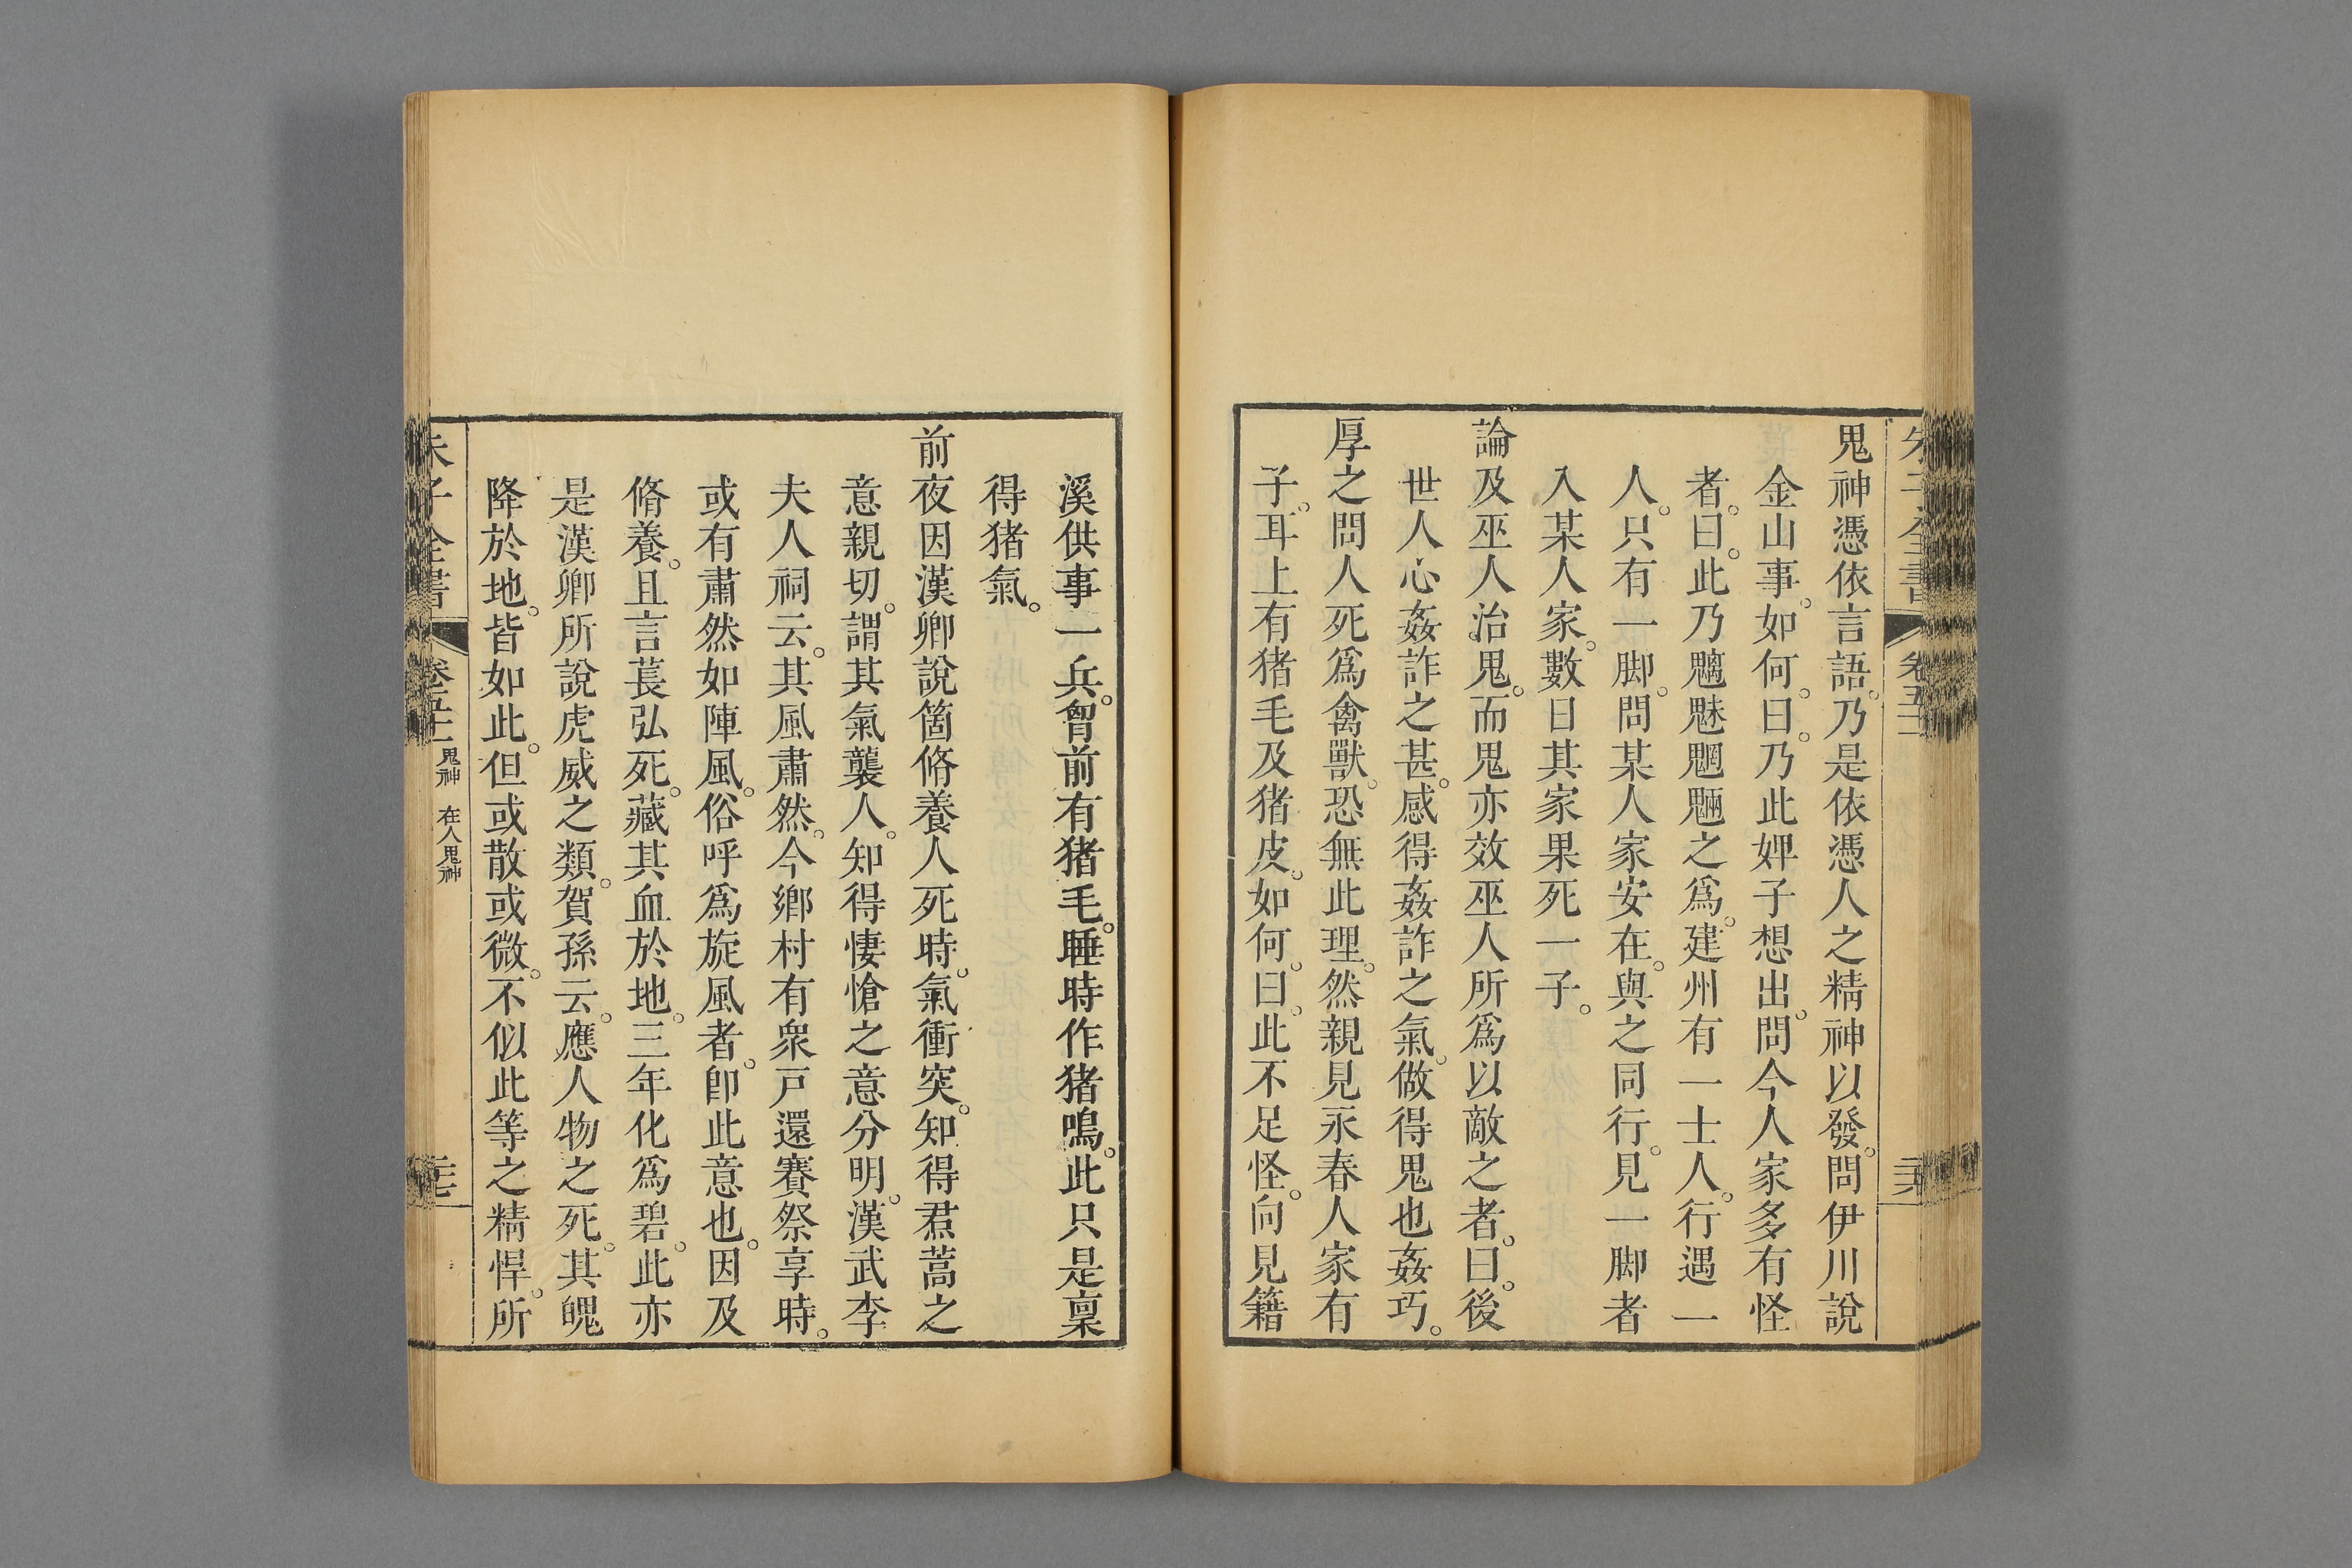 鬼神憑依言語。乃是依憑人之精神以發。問伊川說
金山事。如何。曰。乃此婢子想出。問今人家多有怪
者。曰。此乃魑魅魍魎之爲。建州有一士人。行遇一
人。只有一脚。問某人家安在。與之同行。見一脚者
入某人家。數日其家果死一子。
論及巫人治鬼。而鬼亦效巫人所爲以敵之者。曰。後
世人心姦詐之甚。感得姦詐之氣。做得鬼也姦巧。
厚之問人死爲禽獸。恐無此理。然親見永春人家有
子。耳上有猪毛及猪皮。如何。曰。此不足怪。向見籍
溪供事一兵。胷前有猪毛。睡時作猪鳴。此只是稟
得猪氣。
前夜因漢卿說箇脩養人死時。氣衝突。知得焄蒿之
意親切。謂其氣襲人。知得悽愴之意分明。漢武李
夫人祠云。其風肅然。今鄉村有衆戸還賽祭享時。
或有肅然如陣風。俗呼爲旋風者。卽此意也。因及
脩養。且言萇弘死。藏其血於地。三年化爲碧。此亦
是漢卿所說虎威之類。賀孫云。應人物之死。其魄
降於地。皆如此。但或散或微。不似此等之精悍。所
朱子全書 卷五十一 鬼神 在人鬼神